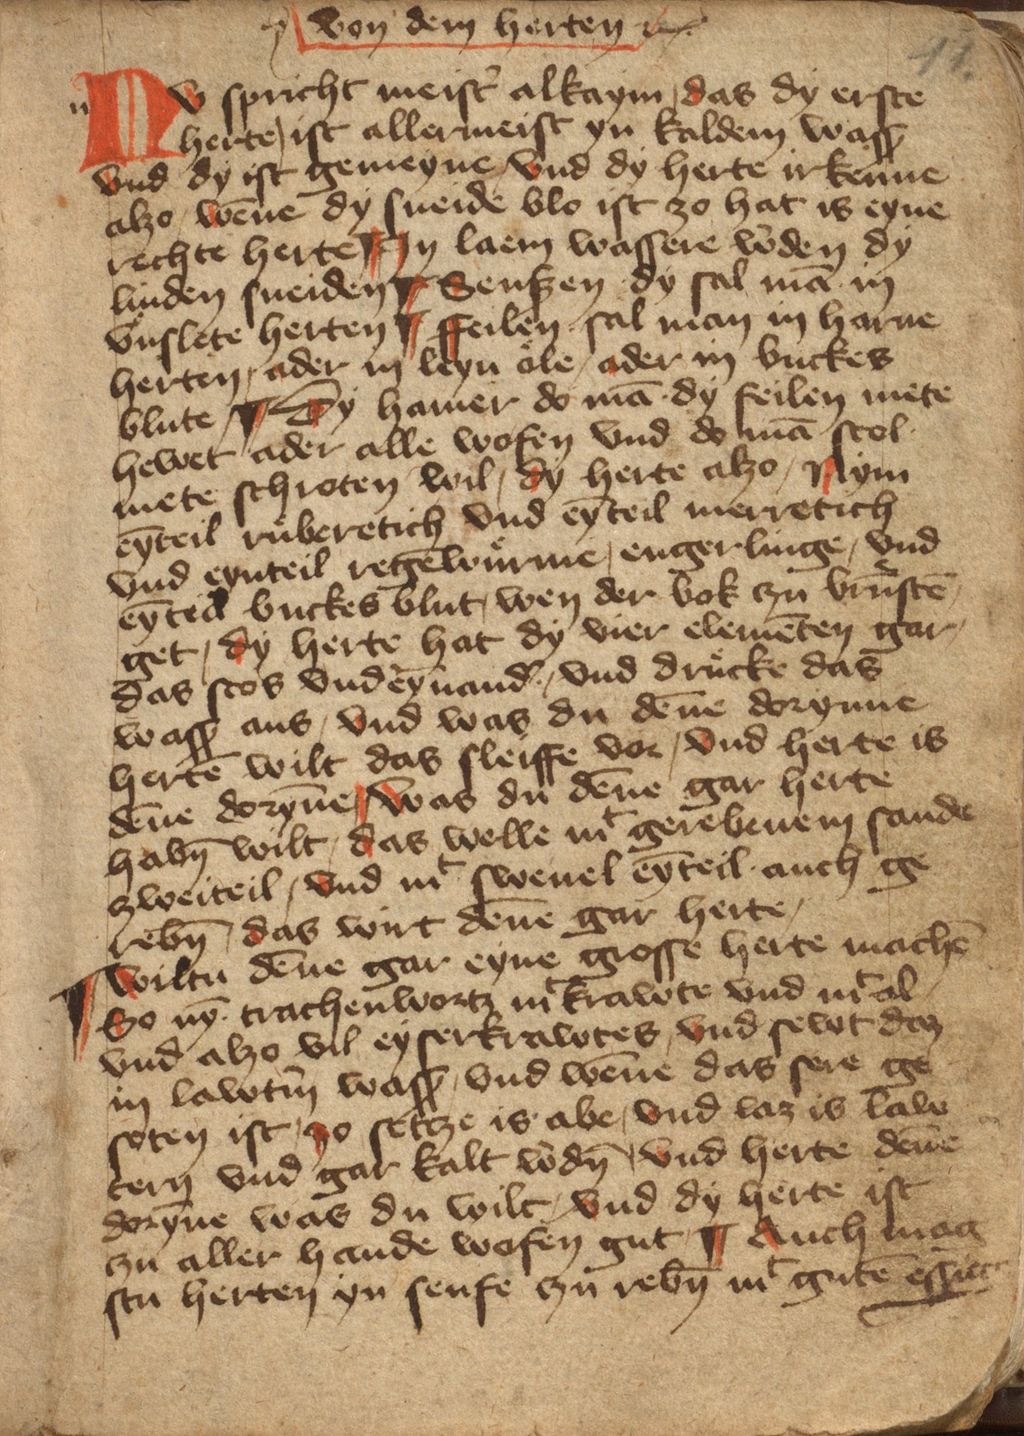 von dem herten rc
11.
NV spricht meister alkaym, das dy erste
herte, ist allermeist yn kaldem wass
vnd dy ist gemeyne, vnd dy herte irkenne
alzo, wēne dy sneide blo ist zo hat is eyne
rechte herte ¶ In laem wassere w'den dy
linden sneiden ¶ Senszen dy sal mā in
vnslete herten ¶ ffeilen sal man in harne
herten, ader in leyn öle, ader in buckes
blute, ¶ Dy hamer do mā dy feilen mete
hewet ader alle wofen vnd do mā stol
mete schroten wil, dy herte alzo, Nym
eȳteil rüberetich vnd eȳteil merretich
vnd eynteil regēwürme, engerlinge, vnd
eȳteil buckes blut, wen der bok zu brūstē
get, dy herte hat dy vier elemēten gar,
das stos vndeȳnand', vnd drücke das
wass aus, vnd was du dēne dorynne
hertē wilt das sleiffe vor, vnd herte is
dēne dorȳne, Was du dēne gar herte
habn̄ wilt, das welle mt gerebenem sande
zweiteil, vnd mt swenel eȳteil auch ge
rebn̄, das wirt dēne gar herte,
¶ Wiltu dēne gar eyne grosse herte machē
So nȳ trachenwortz mt krawte vnd mt al
vnd alzo vil eyserkrawtes, vnd sewt daz
in lawtm̄ wass, vnd wēne das sere ge
soten ist, zo setcze is abe, vnd laz is lalu
tern vnd gar kalt w'dn̄, vnd herte dēne
dorȳne was du wilt, vnd dy herte ist
zu aller hande wofen gut, ¶ Auch mag
stu herten yn senfe zu rebn̄ mt gutē essige